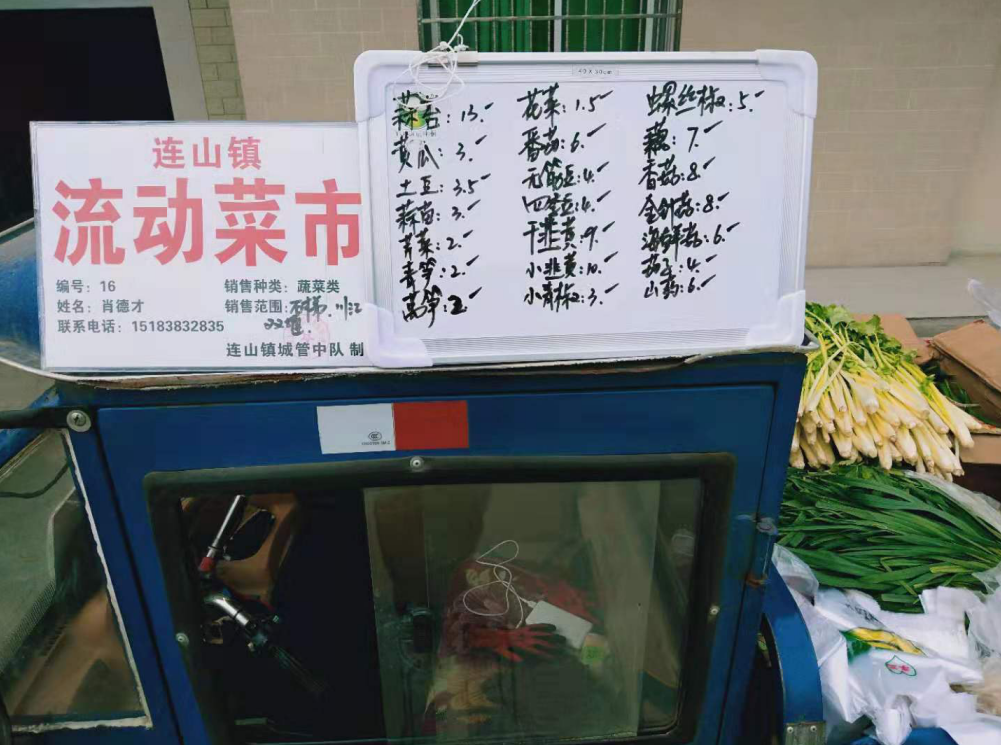 连山镇
流动菜市
编号：16
销售种类：蔬菜类
姓名：肖德才
销售范围：
联系电话：15183832835
双堰
连山镇城管中队 制
40×30cm
蒜台：13.-
黄瓜：3.-
土豆：3.5-
蒜苗：3.-
青菜：2.-
青笋：2.-
莴笋：2-
花菜：1.5-
番茄：6.-
无筋豆：4.-
四季豆：4.-
干韭黄：9.-
小韭黄：10.-
小青椒：3.-
螺丝椒：5.-
藕：7.-
香菇：8-
金针菇：8.-
海鲜菇：6.-
茄子：4.-
山药：6.-